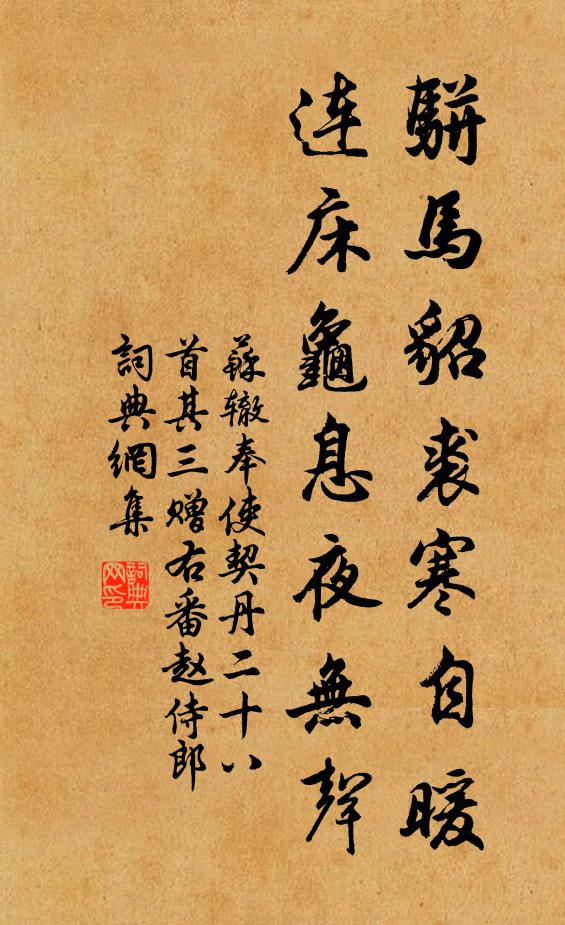 駢馬貂裘寒自暖
連床龜息夜無聲
蘇辙奉使契丹二十八
首其三赠右番赵侍郎
詞典網集
詞典网印